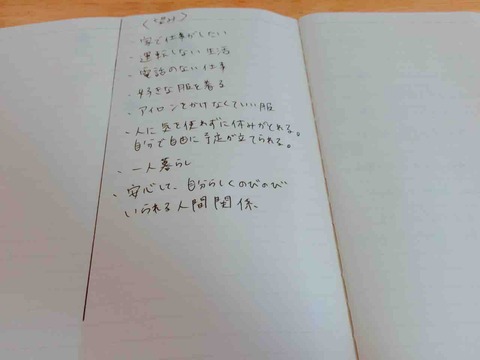 ・家で仕事がしたい
・運転しない生活
・電話のない仕事
・好きな服を着る
・アイロンをかけなくていい服
・人に気を使わずに休みがとれる。
自分で自由に予定が立てられる。
・一人暮らし
・安心して、自分らしくのびのび
いられる人間関係